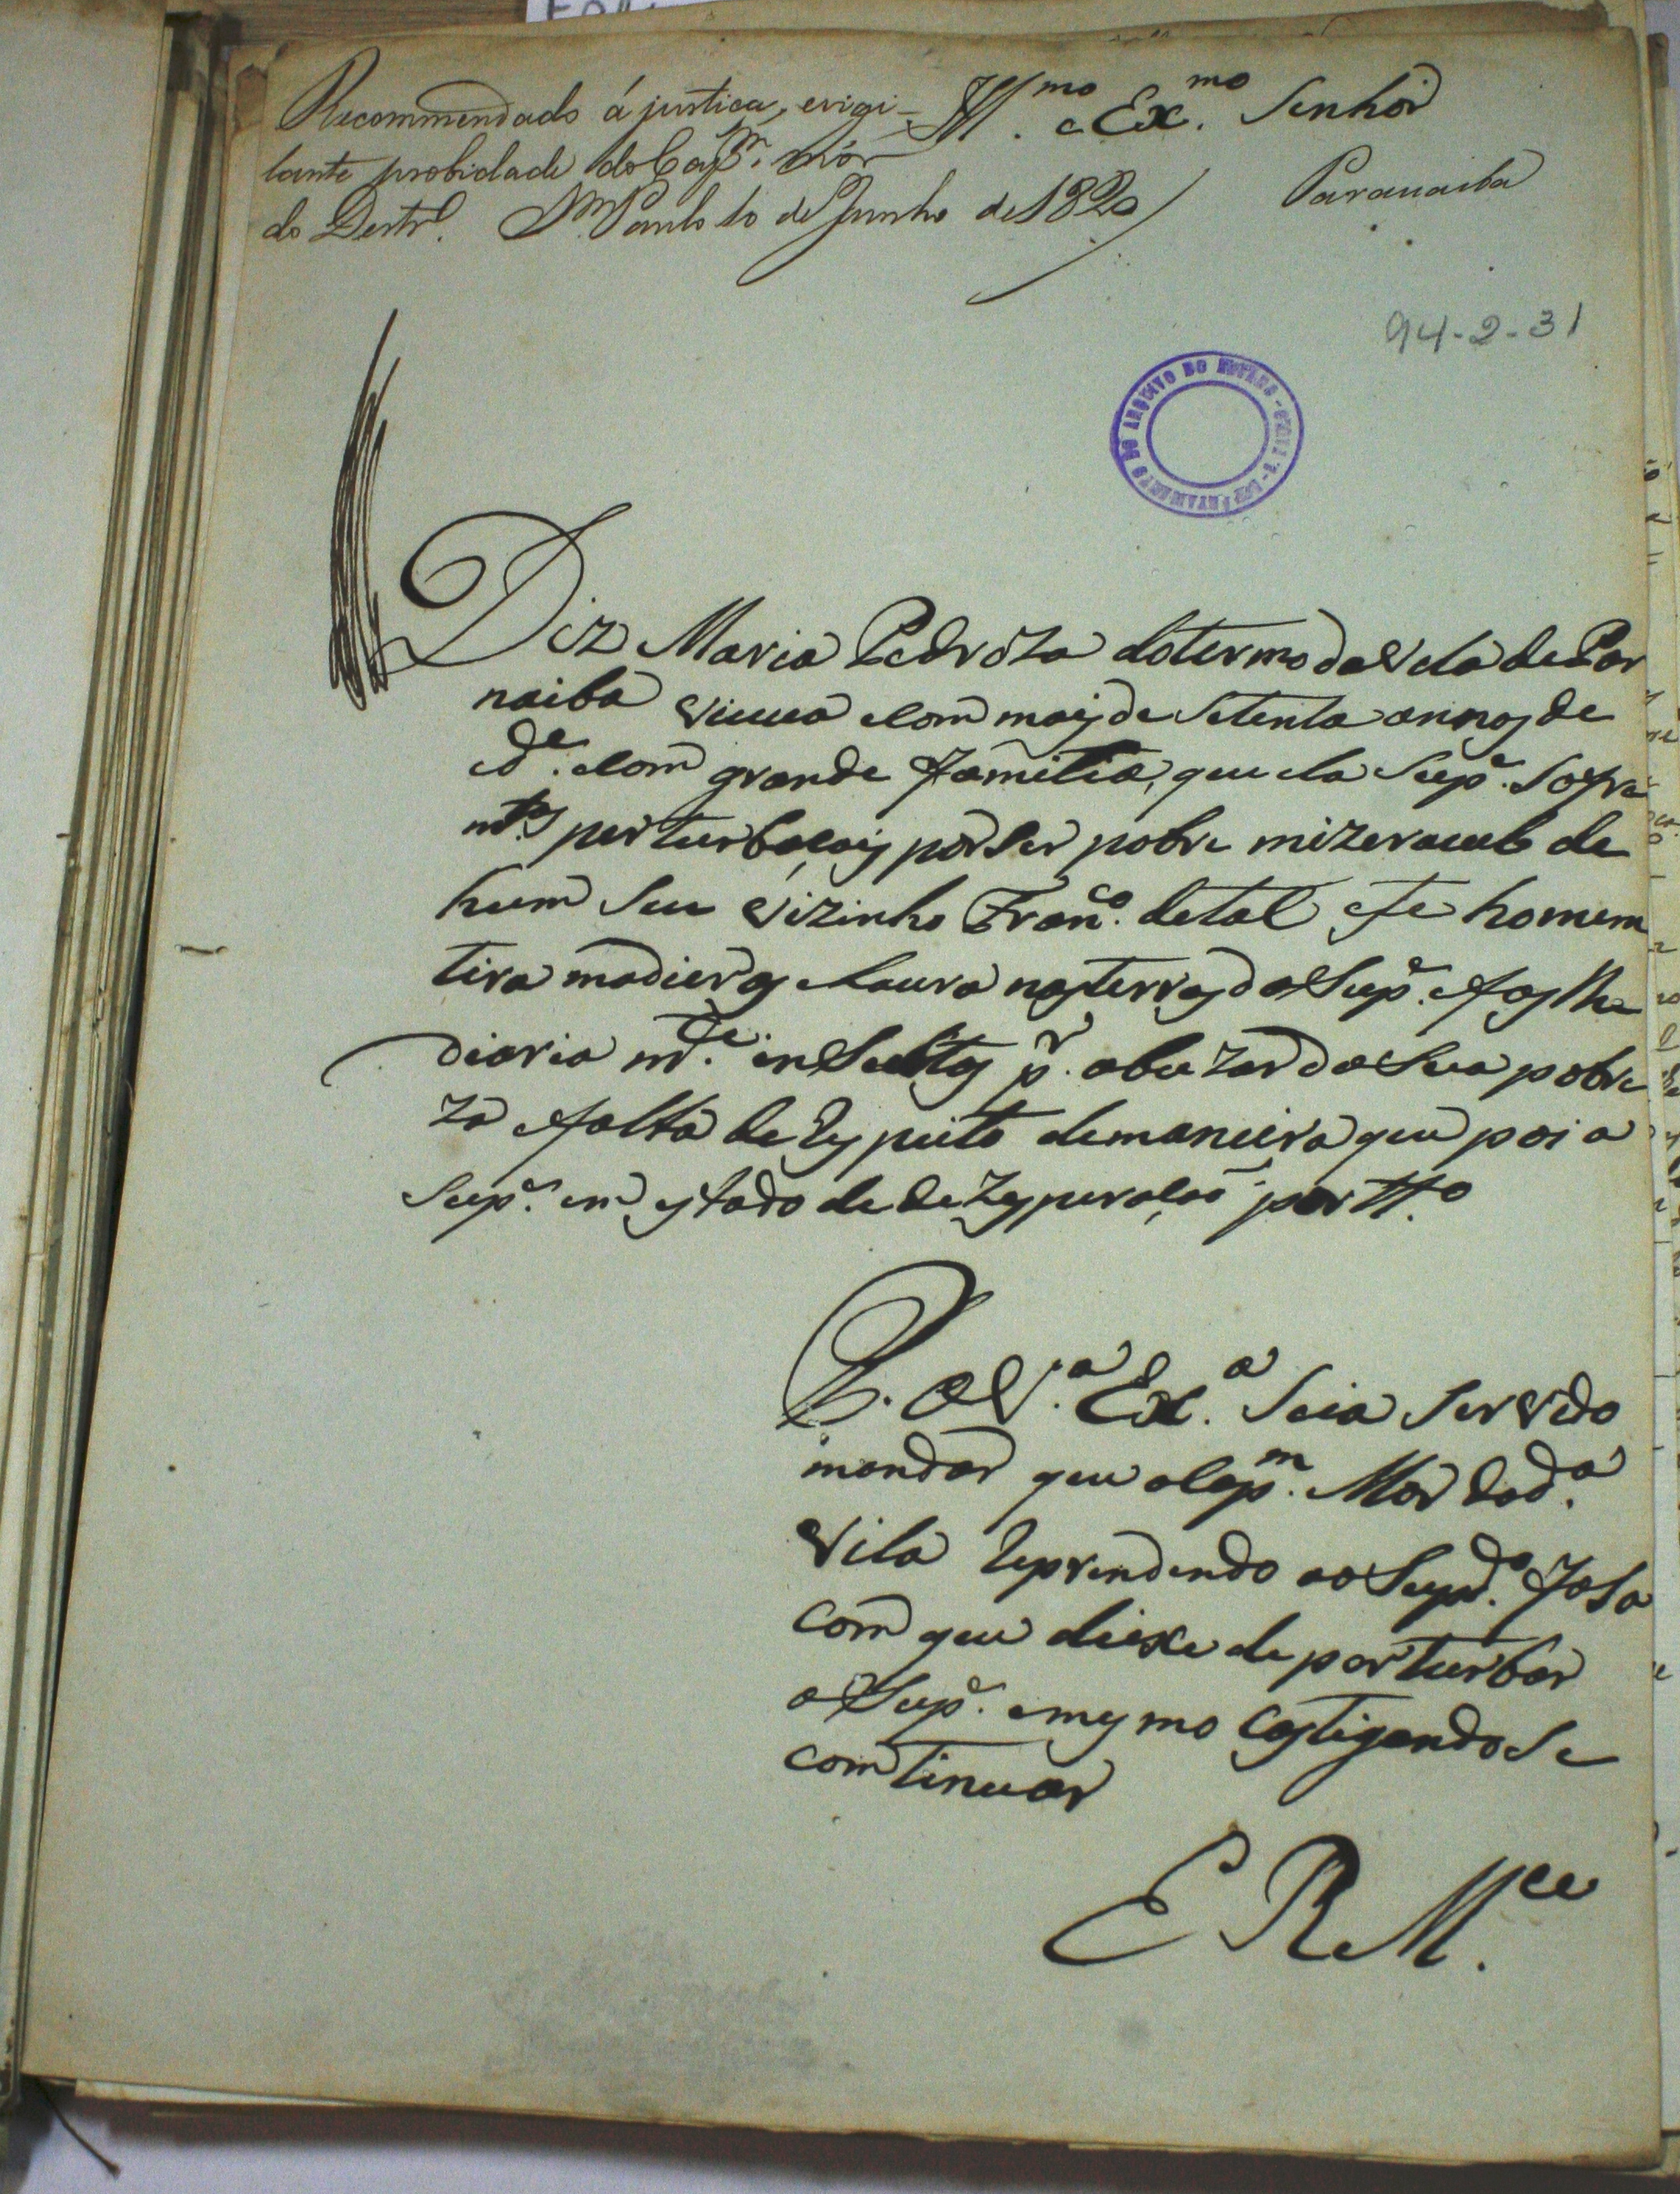 Recommendado á justiça, e vigi-
lante probidade do Cap.m mór
do Destr.o S. Paulo 10 de Junho de 1820
Ill.mo e Ex.mo Senhor
Paranaiba
94-2-31
DEPARTAMENTO DO ARQUIVO DO ESTADO - S. PAULO
Diz Maria Pedroza do termo da Vila de Par
naiba viuua com mais de Setenta annos de
id.e com grande familia, que ela Sup.e Sofre
mtas perturbacois por Ser pobre mizeravel de
hum Seu Vizinho Fran.co de tal este homem
tira madieras e Laura nas terras da Sup.e e fas lhe
diaria m.te insultos p.r abuzar da Sua pobre
za e falta de Respeito de maneira que poi a
Sup.e em estado de dezesperação por tt.o
P. a V.a Ex.a Seia Servido
mandar que o Cap.m Mor da d.a
Vila Reprendendo ao Supd.o fasa
com que dieixe de perturbar
a Sup.e e mesmo Castigando Se
comtinuar
E R M.ce